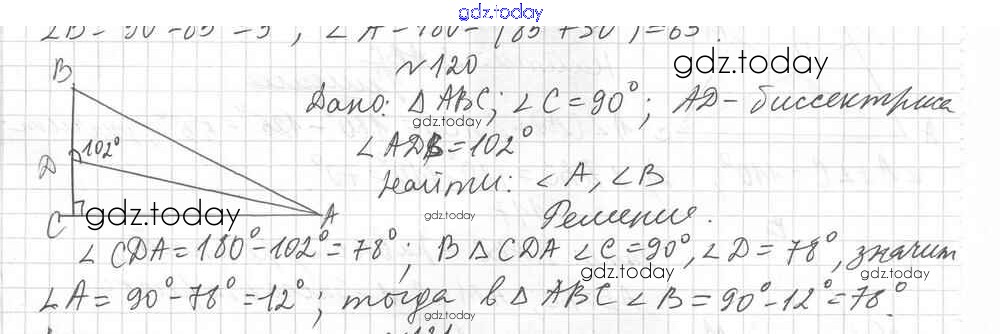 gdz.today
∠B = 90° - 85° = 5°, ∠A = 180 - (85 + 30°) = 65°.
№120
gdz.today
Дано: △ABC; ∠C = 90°; AD - биссектриса
gdz.today
∠ADB = 102°
Найти: ∠A, ∠B
B
102°
D
C
A
gdz.today
gdz.today
Решение.
∠CDA = 180° - 102° = 78°; В △CDA ∠C = 90°, ∠D = 78°, значит
gdz.today
gdz.today
∠A = 90° - 78° = 12°; тогда в △ABC ∠B = 90° - 12° = 78°.
gdz.today